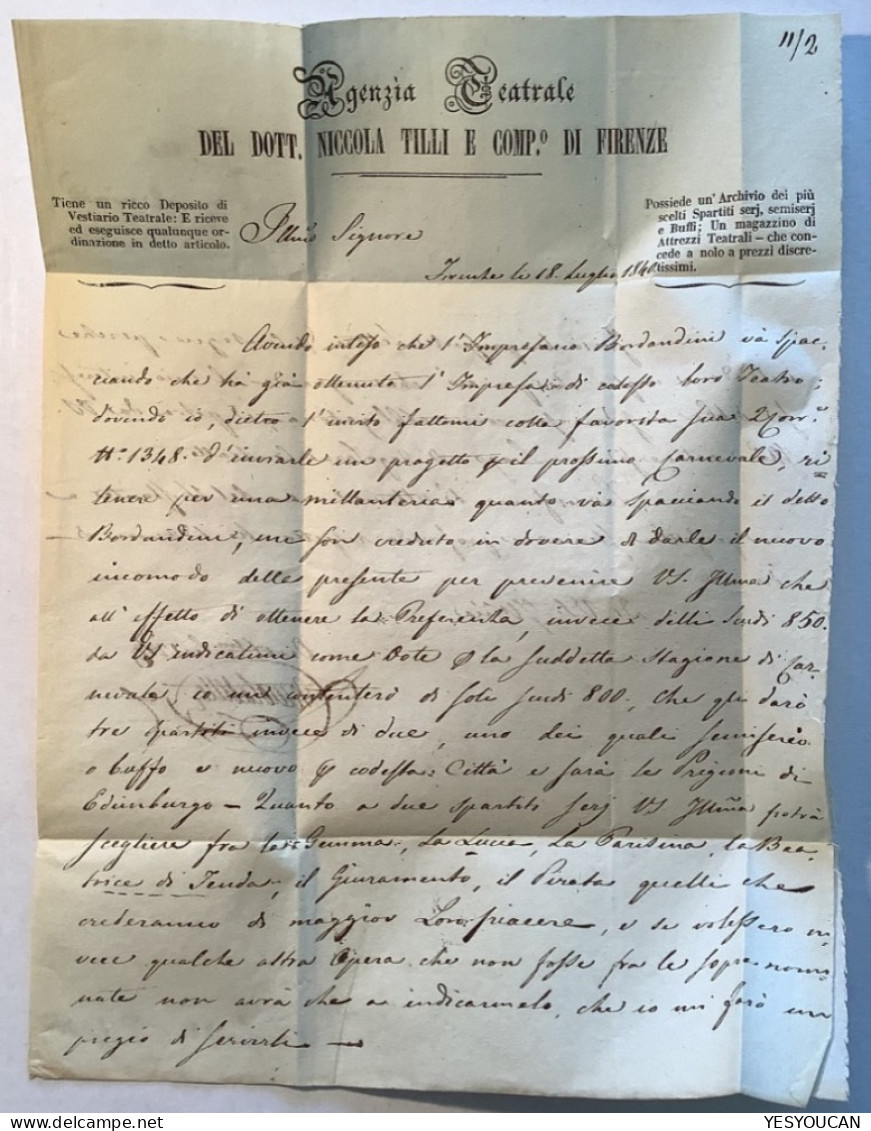 11/2
Agenzia Teatrale
DEL DOTT. NICCOLA TILLI E COMP.º DI FIRENZE
Tiene un ricco Deposito di
Vestiario Teatrale: E riceve
ed eseguisce qualunque or-
dinazione in detto articolo.
Possiede un' Archivio dei più
scelti Spartiti serj, semiserj
e Buffi; Un magazzino di
Attrezzi Teatrali – che con-
cede a nolo a prezzi discre-
tissimi.
Illmo Signore
Firenze li 18. Luglio 1840.
Avendo inteso che l'Impresario Bordandini và spac-
ciando che há già ottenuto l'Impresa di codesto loro Teatro;
dovendo io, dietro l'invito fattomi colla favorita sua
Nº 1348. d'inviarle un progetto il prossimo Carnevale, ri-
tenere per una millanteria quanto và spacciando il detto
Bordandini, mi son creduto in dovere di darle il nuovo
incomodo della presente per prevenire VS. Illma che
all'effetto di ottenere la Preferenza, invece delli Scudi 850.
da VS indicatimi come Dote la suddetta Stagione di Car-
nevale io mi contenterò di soli scudi 800, che gli darò
tre Spartiti invece di due, uno dei quali semiserio
o buffo e nuovo codesta Città e sarà le Prigioni di
Edimburgo – Quanto a due spartiti serj VS Illma potrà
scegliere fra la Gemma, La Lucia, La Parisina, la Bea-
trice di Tenda, il Giuramento, il Pirata quelli che
crederanno di maggior Loro piacere, e se volessero in-
vece qualche altra Opera che non fosse fra le sopranomi-
nate non avrà che a indicarmelo, che io mi farò un
pregio di servirli –
YESYOUCAN